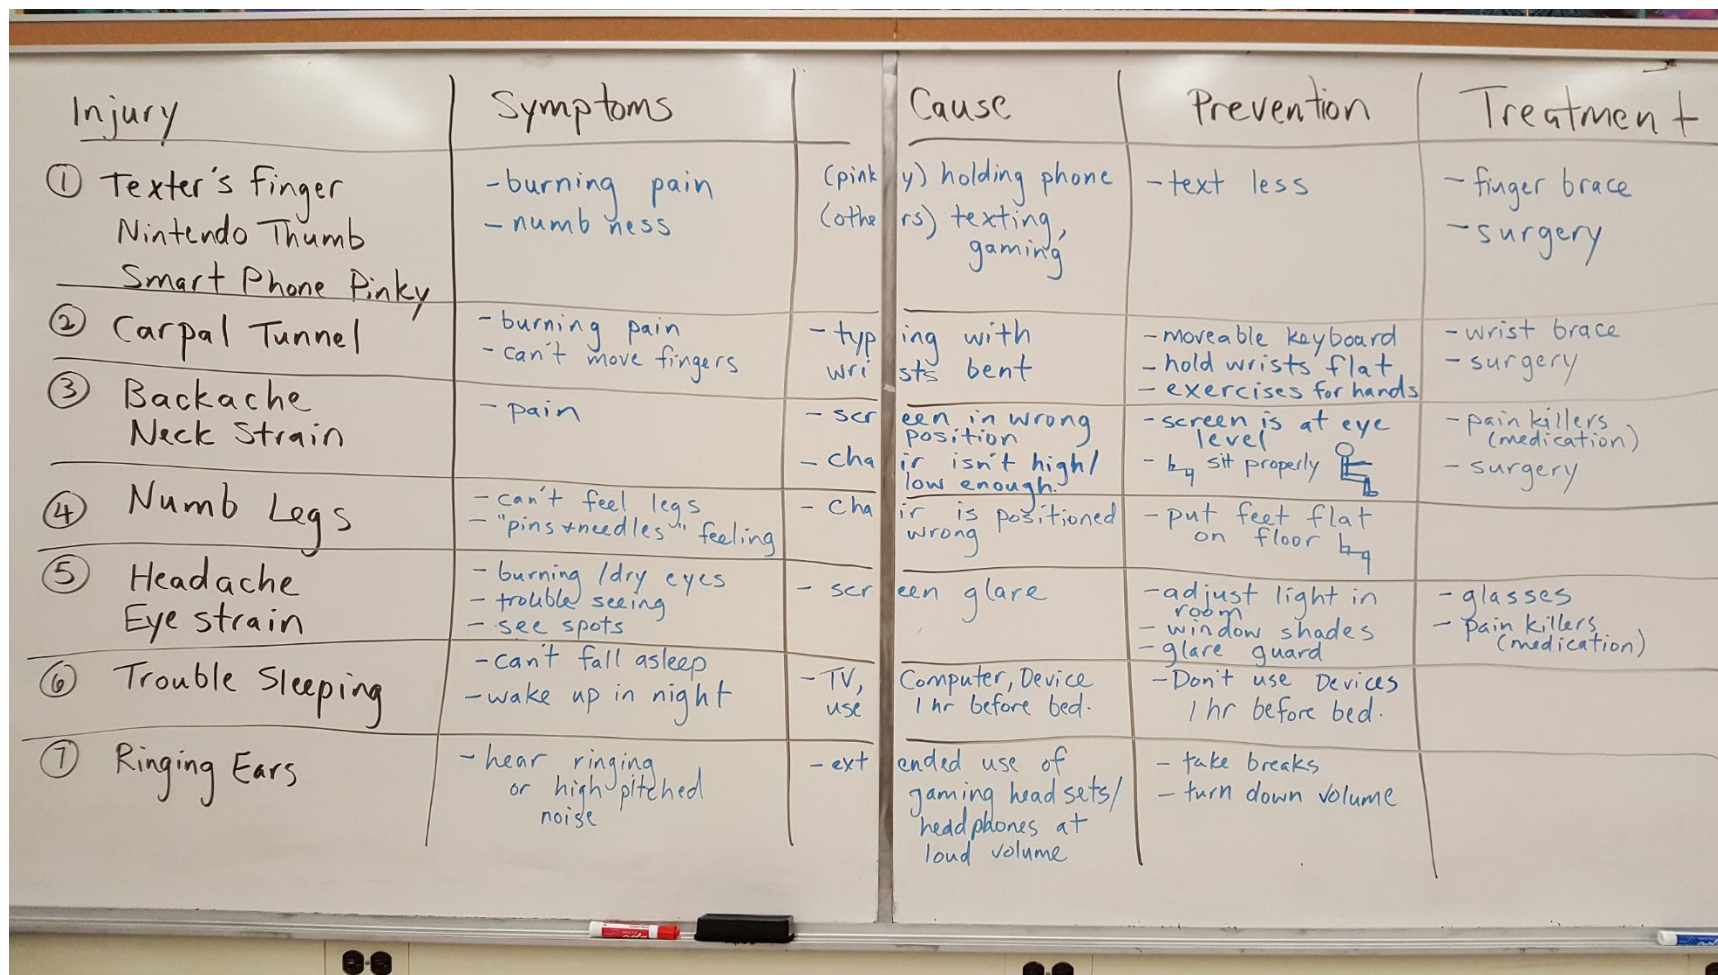 Injury
Symptoms
Cause
Prevention
Treatment
① Texter's finger
Nintendo Thumb
Smart Phone Pinky
- burning pain
- numbness
(pinky) holding phone
(others) texting,
gaming
- text less
- finger brace
- surgery
② Carpal Tunnel
- burning pain
- can't move fingers
- typing with
wrists bent
- moveable keyboard
- hold wrists flat
- exercises for hands
- wrist brace
- surgery
③ Backache
Neck Strain
- pain
- screen in wrong
position
- chair isn't high/
low enough.
- screen is at eye
level
- sit properly
- pain killers
(medication)
- surgery
④ Numb Legs
- can't feel legs
- "pins + needles" feeling
- chair is positioned
wrong
- put feet flat
on floor
⑤ Headache
Eye strain
- burning /dry eyes
- trouble seeing
- see spots
- screen glare
- adjust light in
room
- window shades
- glare guard
- glasses
- pain killers
(medication)
⑥ Trouble Sleeping
- can't fall asleep
- wake up in night
- TV, Computer, Device
use 1 hr before bed.
- Don't use Devices
1 hr before bed.
⑦ Ringing Ears
- hear ringing
or high pitched
noise
- extended use of
gaming headsets/
headphones at
loud volume
- take breaks
- turn down volume